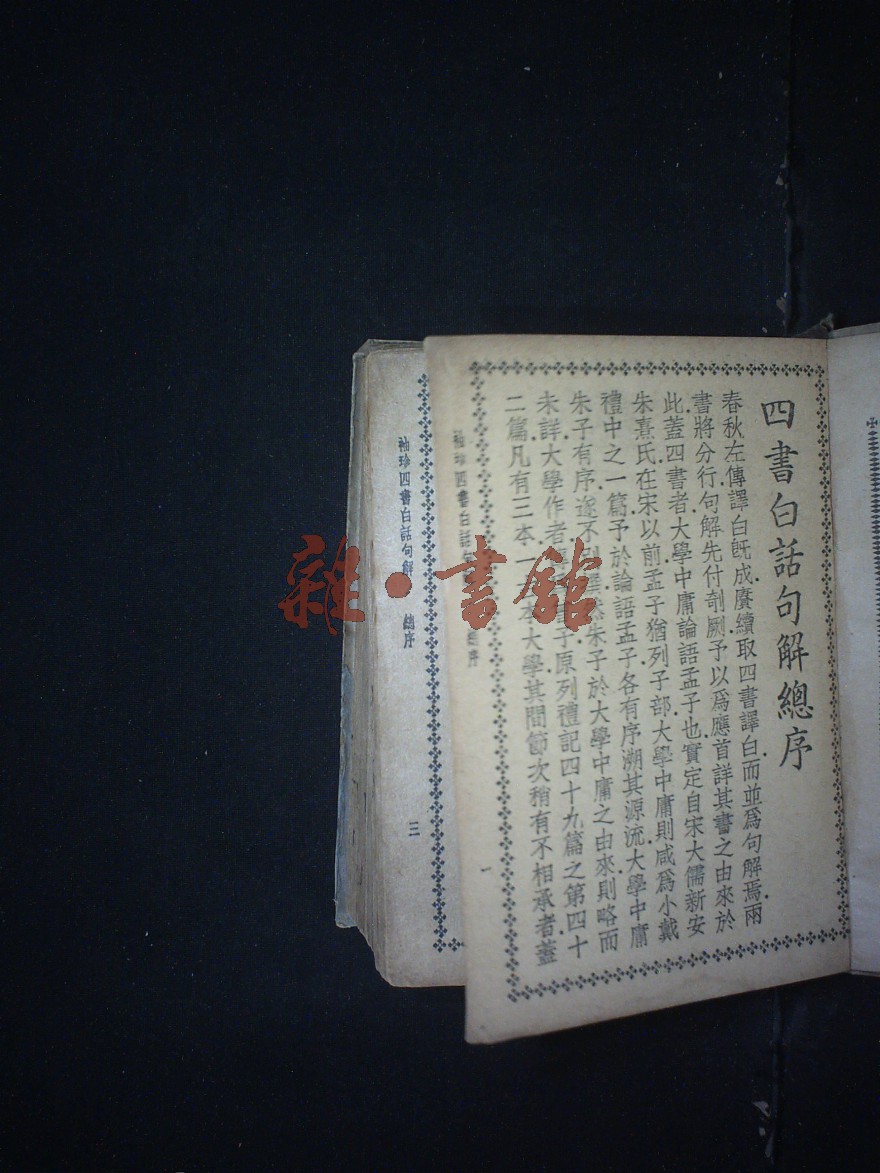 四書白話句解總序
春秋左傳譯白旣成賡續取四書譯白而並爲句解焉兩
書將分行句解先付剞劂予以爲應首詳其書之由來於
此蓋四書者大學中庸論語孟子也實定自宋大儒新安
朱熹氏在宋以前孟子猶列子部大學中庸則咸爲小戴
禮中之一篇予於論語孟子各有序溯其源流大學中庸
朱子有序遂不 朱子於大學中庸之由來則略而
未詳大學作者 子原列禮記四十九篇之第四十
二篇凡有三本一 本大學其間節次稍有不相承者蓋
袖珍四書白話句 總序
一
袖珍四書白話句解 總序
三
雜·書館